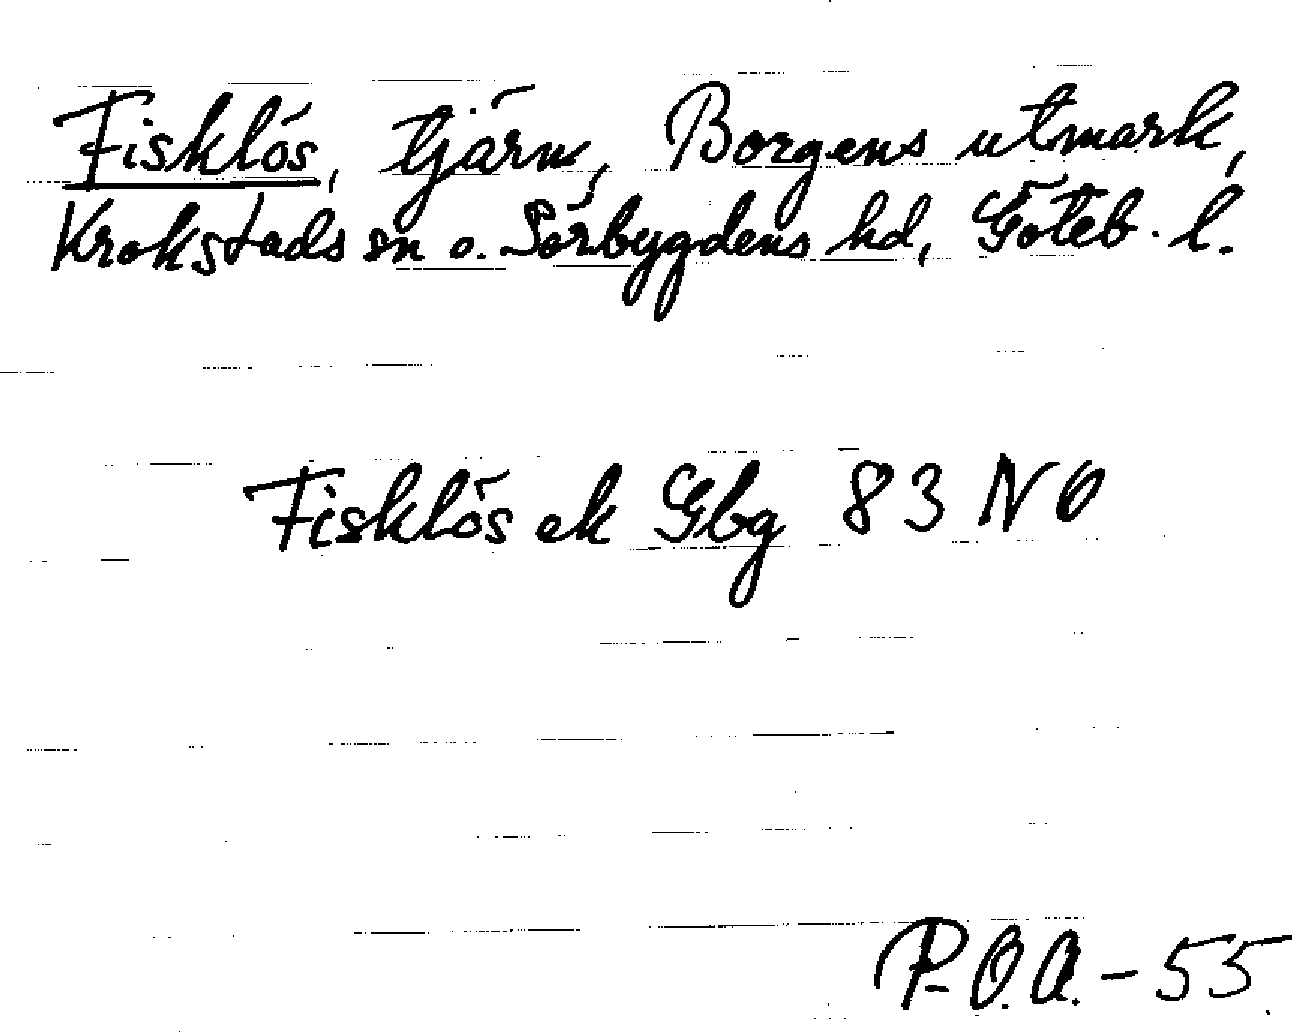 Fisklös, tjärn, Borgens utmark,
Krokstads sn o. Sörbygdens hd, Göteb. l.
Fisklös ek Gbg 83 NO
P-O.A. - 55.